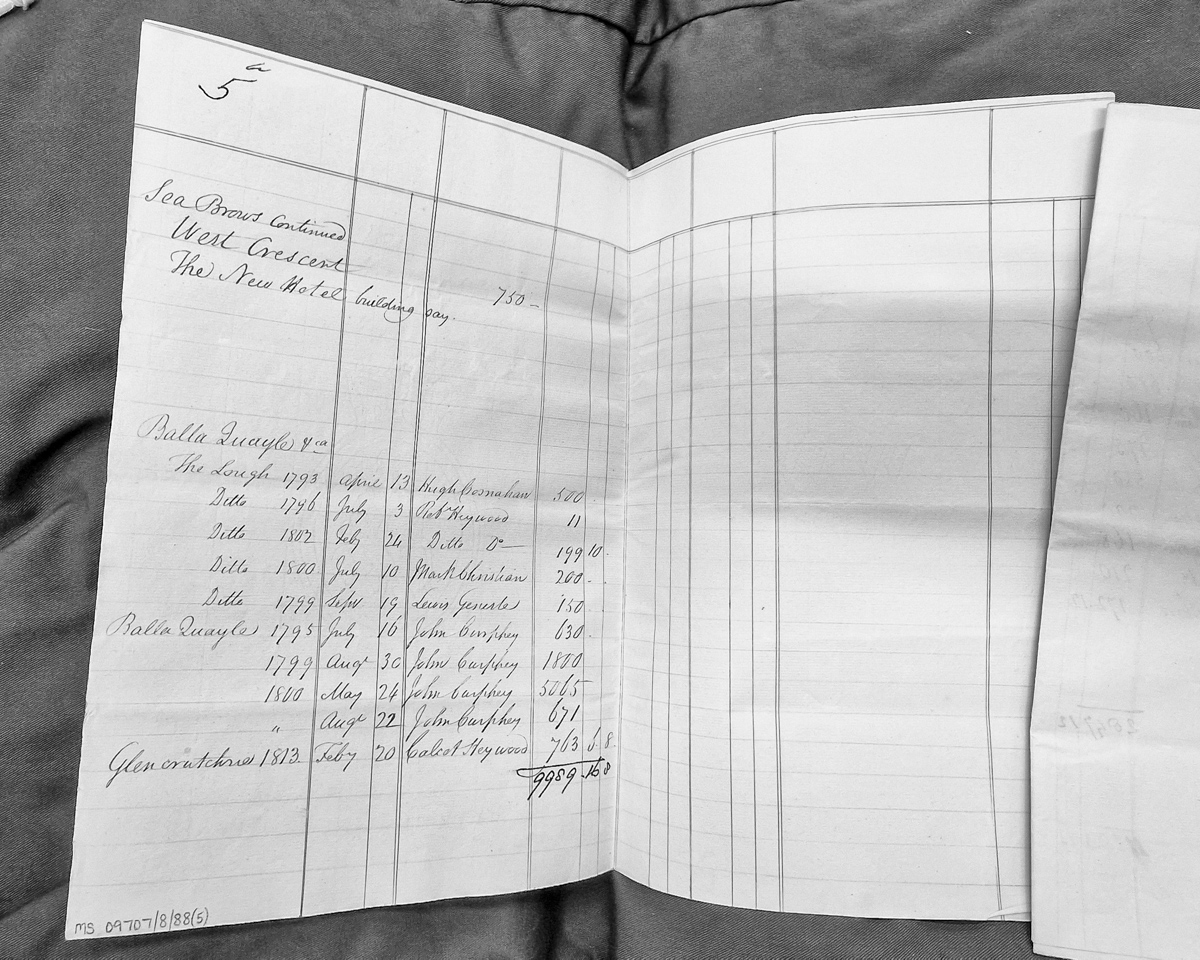 5 a
Sea Brows Continued
West Crescent
The New Hotel building say. 750 –
Balla Quayle &ca
The Lough 1793 April 13 Hugh Cosnahan 500 -
Ditto 1796 July 3 Robt Heywood 11
Ditto 1802 Feby 24 Ditto Do — 199 10 -
Ditto 1800 July 10 Mark Christian 200 - -
Ditto 1799 Sepr 19 Lewis Geneste 150 -
Balla Quayle 1795 July 16 John Curphey 630 -
1799 Augt 30 John Curphey 1800
1800 May 24 John Curphey 5065
" Augt 22 John Curphey 671
Glencrutchrie 1813 Feby 20 Calcot Heywood 763 6 8
9989 .16 8
MS 09707/8/88(5)